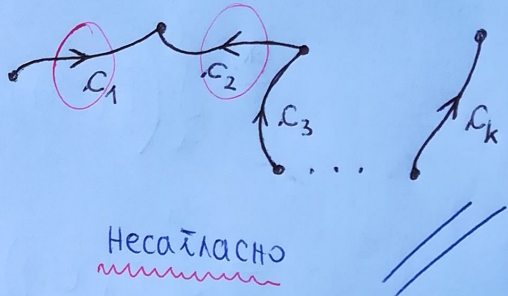 C₁
C₂
C₃
. . .
Cₖ
Несагласно